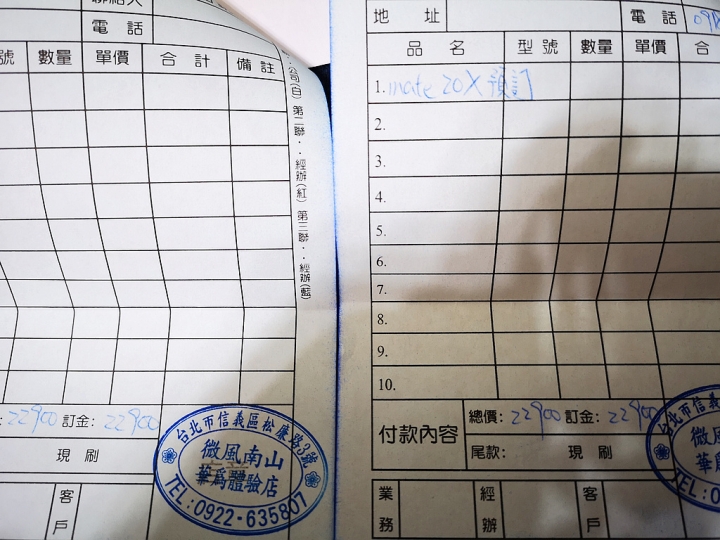 電話
號 數量 單價 合計 備註
公司(白) 第二聯：經辦(紅) 第三聯：經辦(藍)
22900 訂金: 22900
現 刷
客
戶
台北市信義區松廉路3號
微風南山
華為體驗店
TEL:0922-635807
地址 電話 09
品名 型號 數量 單價 合
1. mate 20X 預訂
2.
3.
4.
5.
6.
7.
8.
9.
10.
付款內容
總價: 22900 訂金: 22900
尾款: 現 刷
業 經 客
務 辦 戶
微風
華為
TEL:0